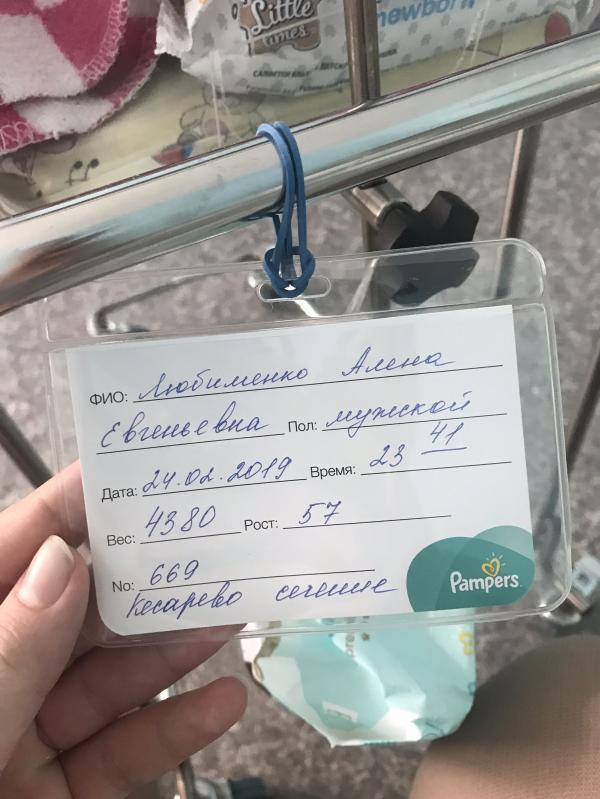 Little
times
newborn
ФИО: Любименко Алена
Евгеньевна Пол: мужской
Дата: 24.02.2019 Время: 23 41
Вес: 4380 Рост: 57
No: 669
Кесарево сечение
Pampers